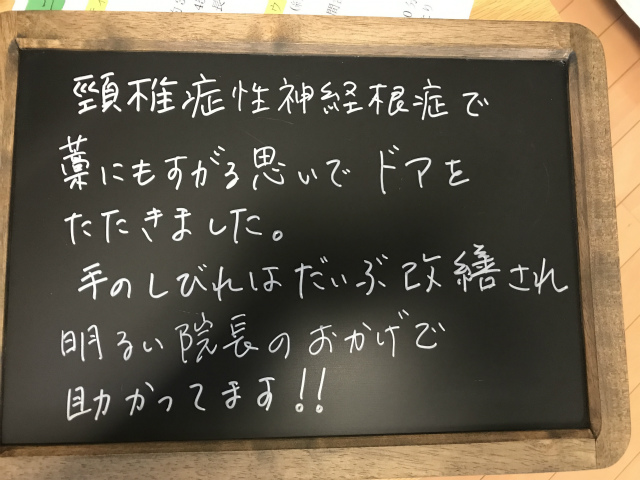 頸椎症性神経根症で
藁にもすがる思いでドアを
たたきました。
手のしびれはだいぶ改繕され
明るい院長のおかげで
助かってます!!